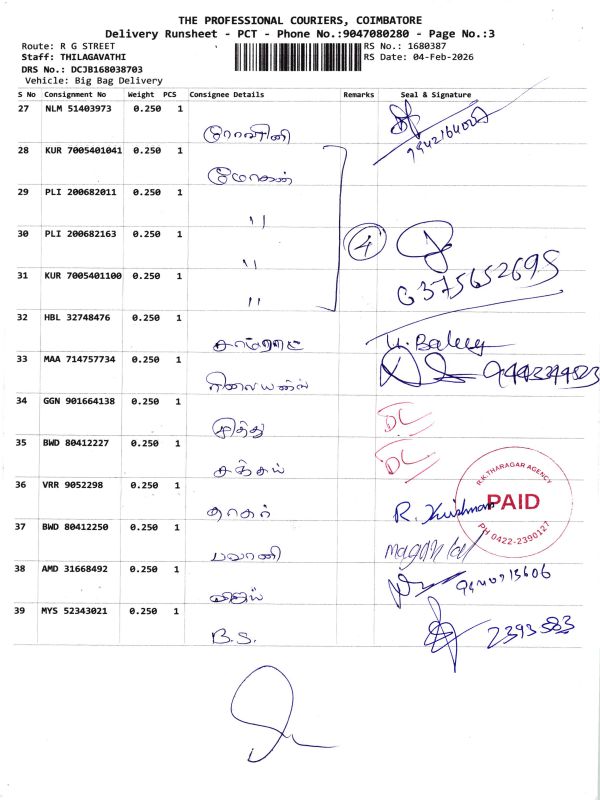 THE PROFESSIONAL COURIERS, COIMBATORE
Delivery Runsheet - PCT - Phone No.:9047080280 - Page No.:3
Route: R G STREET
RS No.: 1680387
Staff: THILAGAVATHI
RS Date: 04-Feb-2026
DRS No.: DCJB168038703
Vehicle: Big Bag Delivery
S No Consignment No Weight PCS Consignee Details Remarks Seal & Signature
27 NLM 51403973 0.250 1
28 KUR 7005401041 0.250 1
மோகன்
29 PLI 200682011 0.250 1
"
30 PLI 200682163 0.250 1
4
"
31 KUR 7005401100 0.250 1
"
6375652695
32 HBL 32748476 0.250 1
33 MAA 714757734 0.250 1
ரிலையன்ஸ்
34 GGN 901664138 0.250 1
முத்து DC
35 BWD 80412227 0.250 1
DC
36 VRR 9052298 0.250 1
R.K.THARAGAR AGENCY
PAID
PH 0422-2390127
தாகர்
37 BWD 80412250 0.250 1
பவானி
38 AMD 31668492 0.250 1
விஜய்
39 MYS 52343021 0.250 1
B.S. 2393583